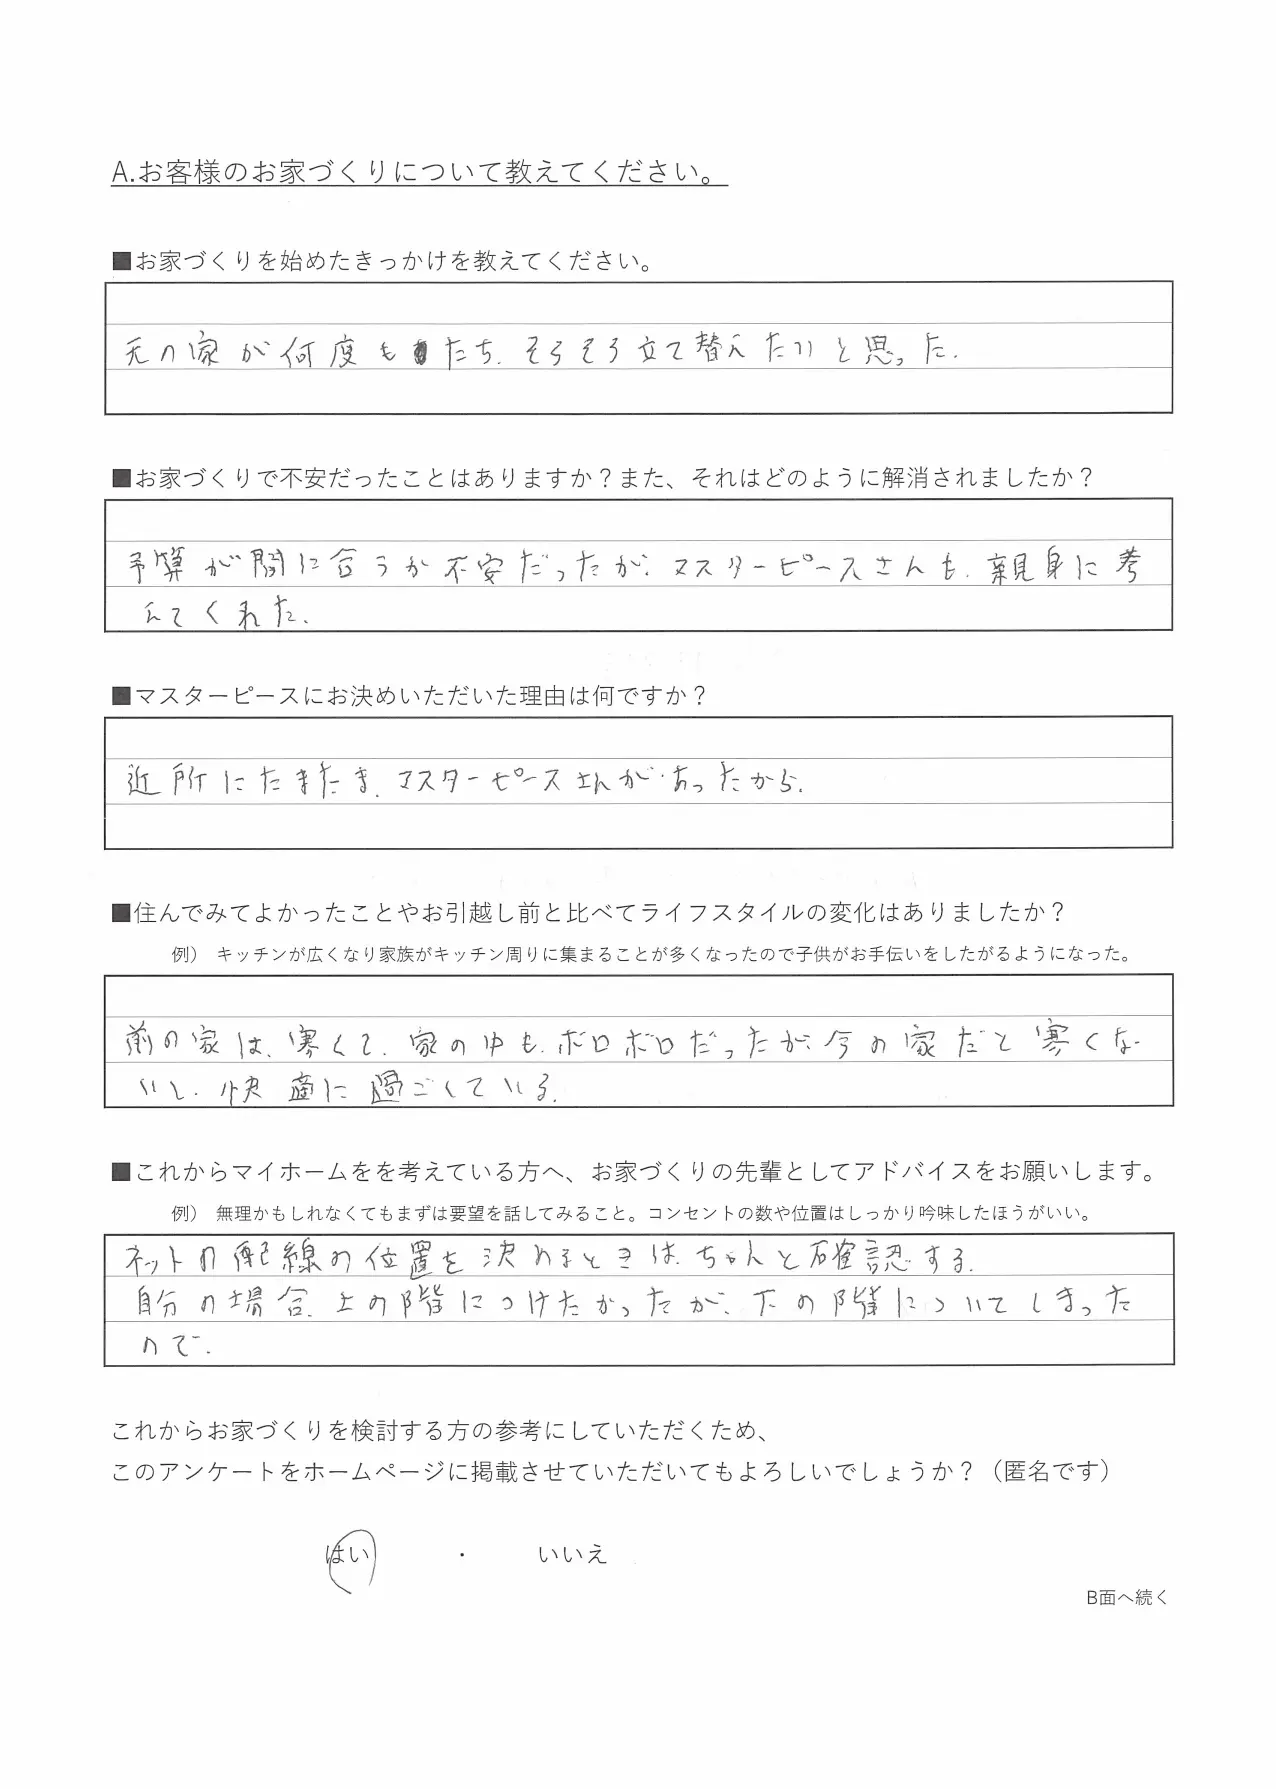 A.お客様のお家づくりについて教えてください。
■お家づくりを始めたきっかけを教えてください。
元の家が何度もたち、そろそろ立て替えたいと思った。
■お家づくりで不安だったことはありますか？また、それはどのように解消されましたか？
予算が間に合うか不安だったが、マスターピースさんも、親身に考
えてくれた。
■マスターピースにお決めいただいた理由は何ですか？
近所にたまたま、マスターピースさんが、あったから。
■住んでみてよかったことやお引越し前と比べてライフスタイルの変化はありましたか？
例） キッチンが広くなり家族がキッチン周りに集まることが多くなったので子供がお手伝いをしたがるようになった。
前の家は、寒くて、家の中も、ボロボロだったが、今の家だと寒くな
いし、快適に過ごしている。
■これからマイホームをを考えている方へ、お家づくりの先輩としてアドバイスをお願いします。
例） 無理かもしれなくてもまずは要望を話してみること。コンセントの数や位置はしっかり吟味したほうがいい。
ネットの配線の位置を決めるときは、ちゃんと確認する。
自分の場合、上の階につけたかったが、下の階についてしまった
ので。
これからお家づくりを検討する方の参考にしていただくため、
このアンケートをホームページに掲載させていただいてもよろしいでしょうか？（匿名です）
はい ・ いいえ
B面へ続く